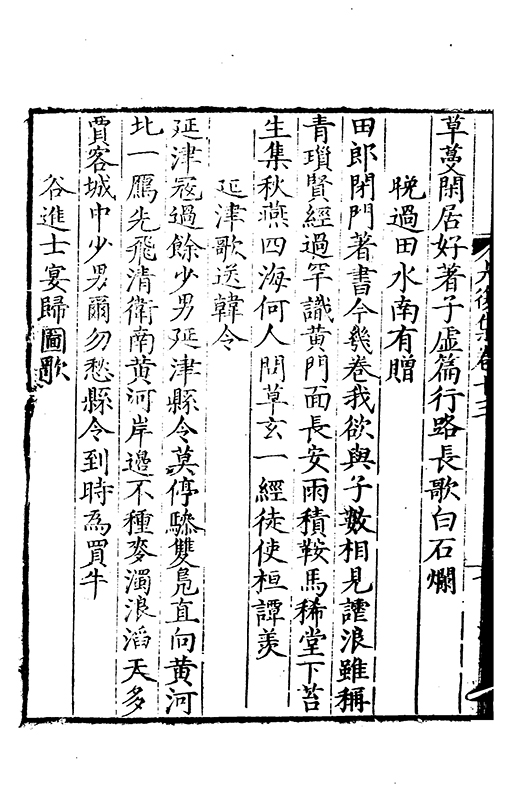 草蔓閑居好著子虛篇行路長歌白石爛
晚過田水南有贈
田郎閉門著書今幾卷我欲與子數相見讙浪雖稱
青瑣賢經過罕識黃門面長安雨積鞍馬稀堂下苔
生集秋燕四海何人問草玄一經徒使桓譚羨
延津歌送韓令
延津寇過餘少男延津縣令莫停驂雙鳧直向黃河
北一鴈先飛清衛南黃河岸邊不種麥濁浪滔天多
賈客城中少男爾勿愁縣令到時為買牛
谷進士宴歸圖歌